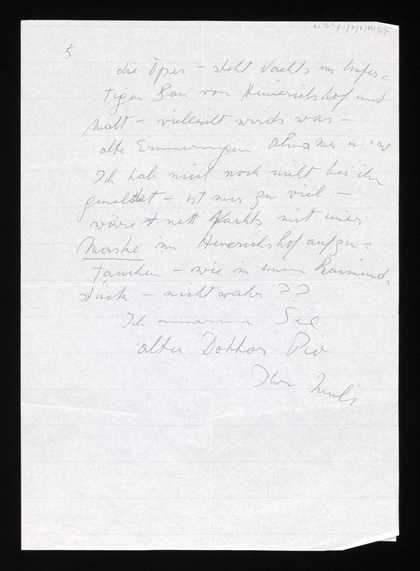 5
die Oper – steht Nachts im unfer-
tigen Bau von Heinrichshof und
malt – vielleicht wirds was –
alte Erinnerungen
Ich hab mich noch nicht bei ihr
gemeldet – ist mir zu viel –
wäre nett Nachts mit einer
Maske im Heinrichshof aufzu-
tauchen – wie in einem Raimund-
stück – nicht wahr ??
Ich umarme Sie
alter Doktor
Ihr